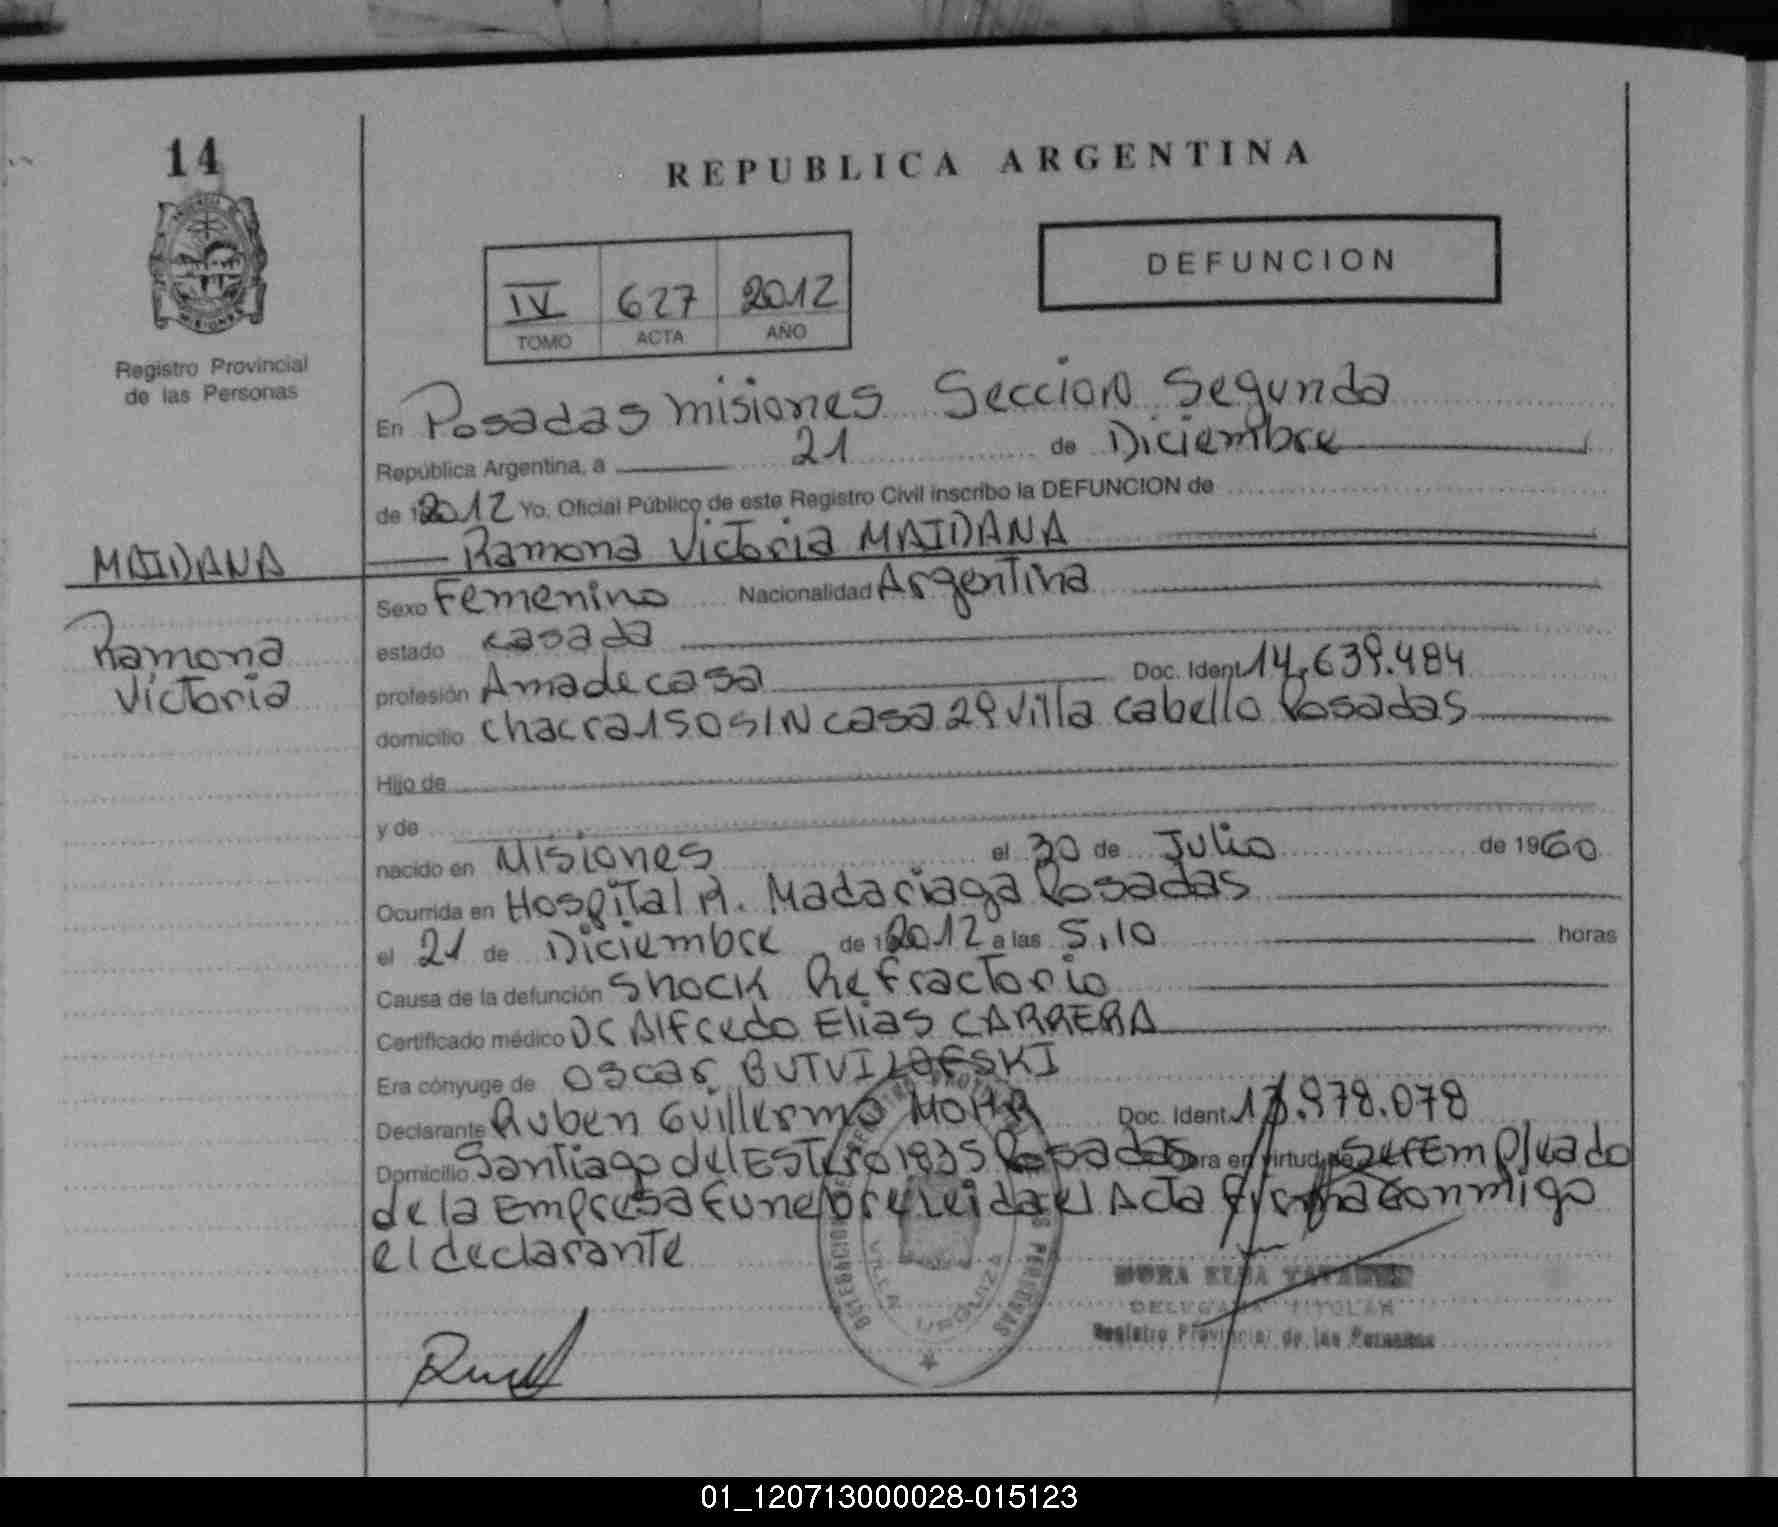 14
REPUBLICA ARGENTINA
DEFUNCION
IV 627 2012
TOMO ACTA AÑO
MISIONES
Registro Provincial
de las Personas
En Posadas misiones Seccion Segunda
República Argentina, a 21 de Diciembre
de 2012 Yo, Oficial Público de este Registro Civil inscribo la DEFUNCION de
MAIDANA
Ramona Victoria MAIDANA
Ramona
Victoria
Sexo Femenino Nacionalidad Argentina
estado casada
profesión Amadecasa Doc. Ident. 14.639.484
domicilio chacra 150 S/N casa 29 Villa Cabello Posadas
Hijo de
y de
nacido en Misiones el 30 de Julio de 1960
Ocurrida en Hospital R. Madariaga Posadas
el 21 de Diciembre de 2012 a las 5,10 horas
Causa de la defunción Shock Refractorio
Certificado médico Dr Alfredo Elias CARRERA
Era cónyuge de Oscar
Declarante Ruben Guillermo MOHR Doc. Ident. .978.078
Domicilio Santiago del Estero 1835 Posadas Obra en virtud de ser Empleado
de la Empresa Funebre Leida el Acta firma conmigo
el declarante
VILLA URQUIZA
DELEGADA TITULAR
Registro Provincial de las Personas
01_120713000028-015123